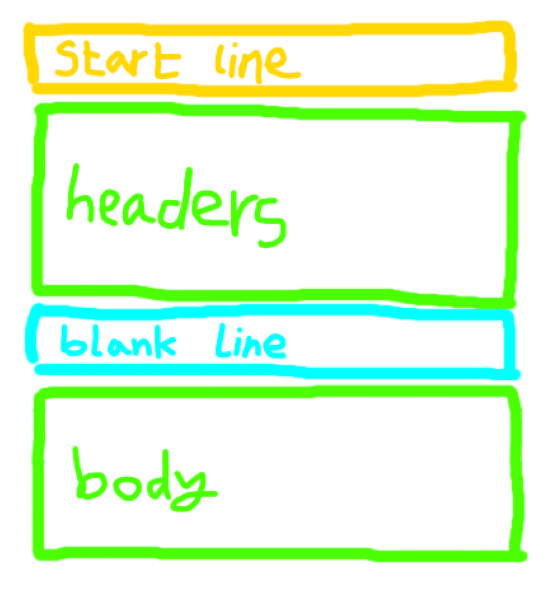 Start line
headers
blank line
body